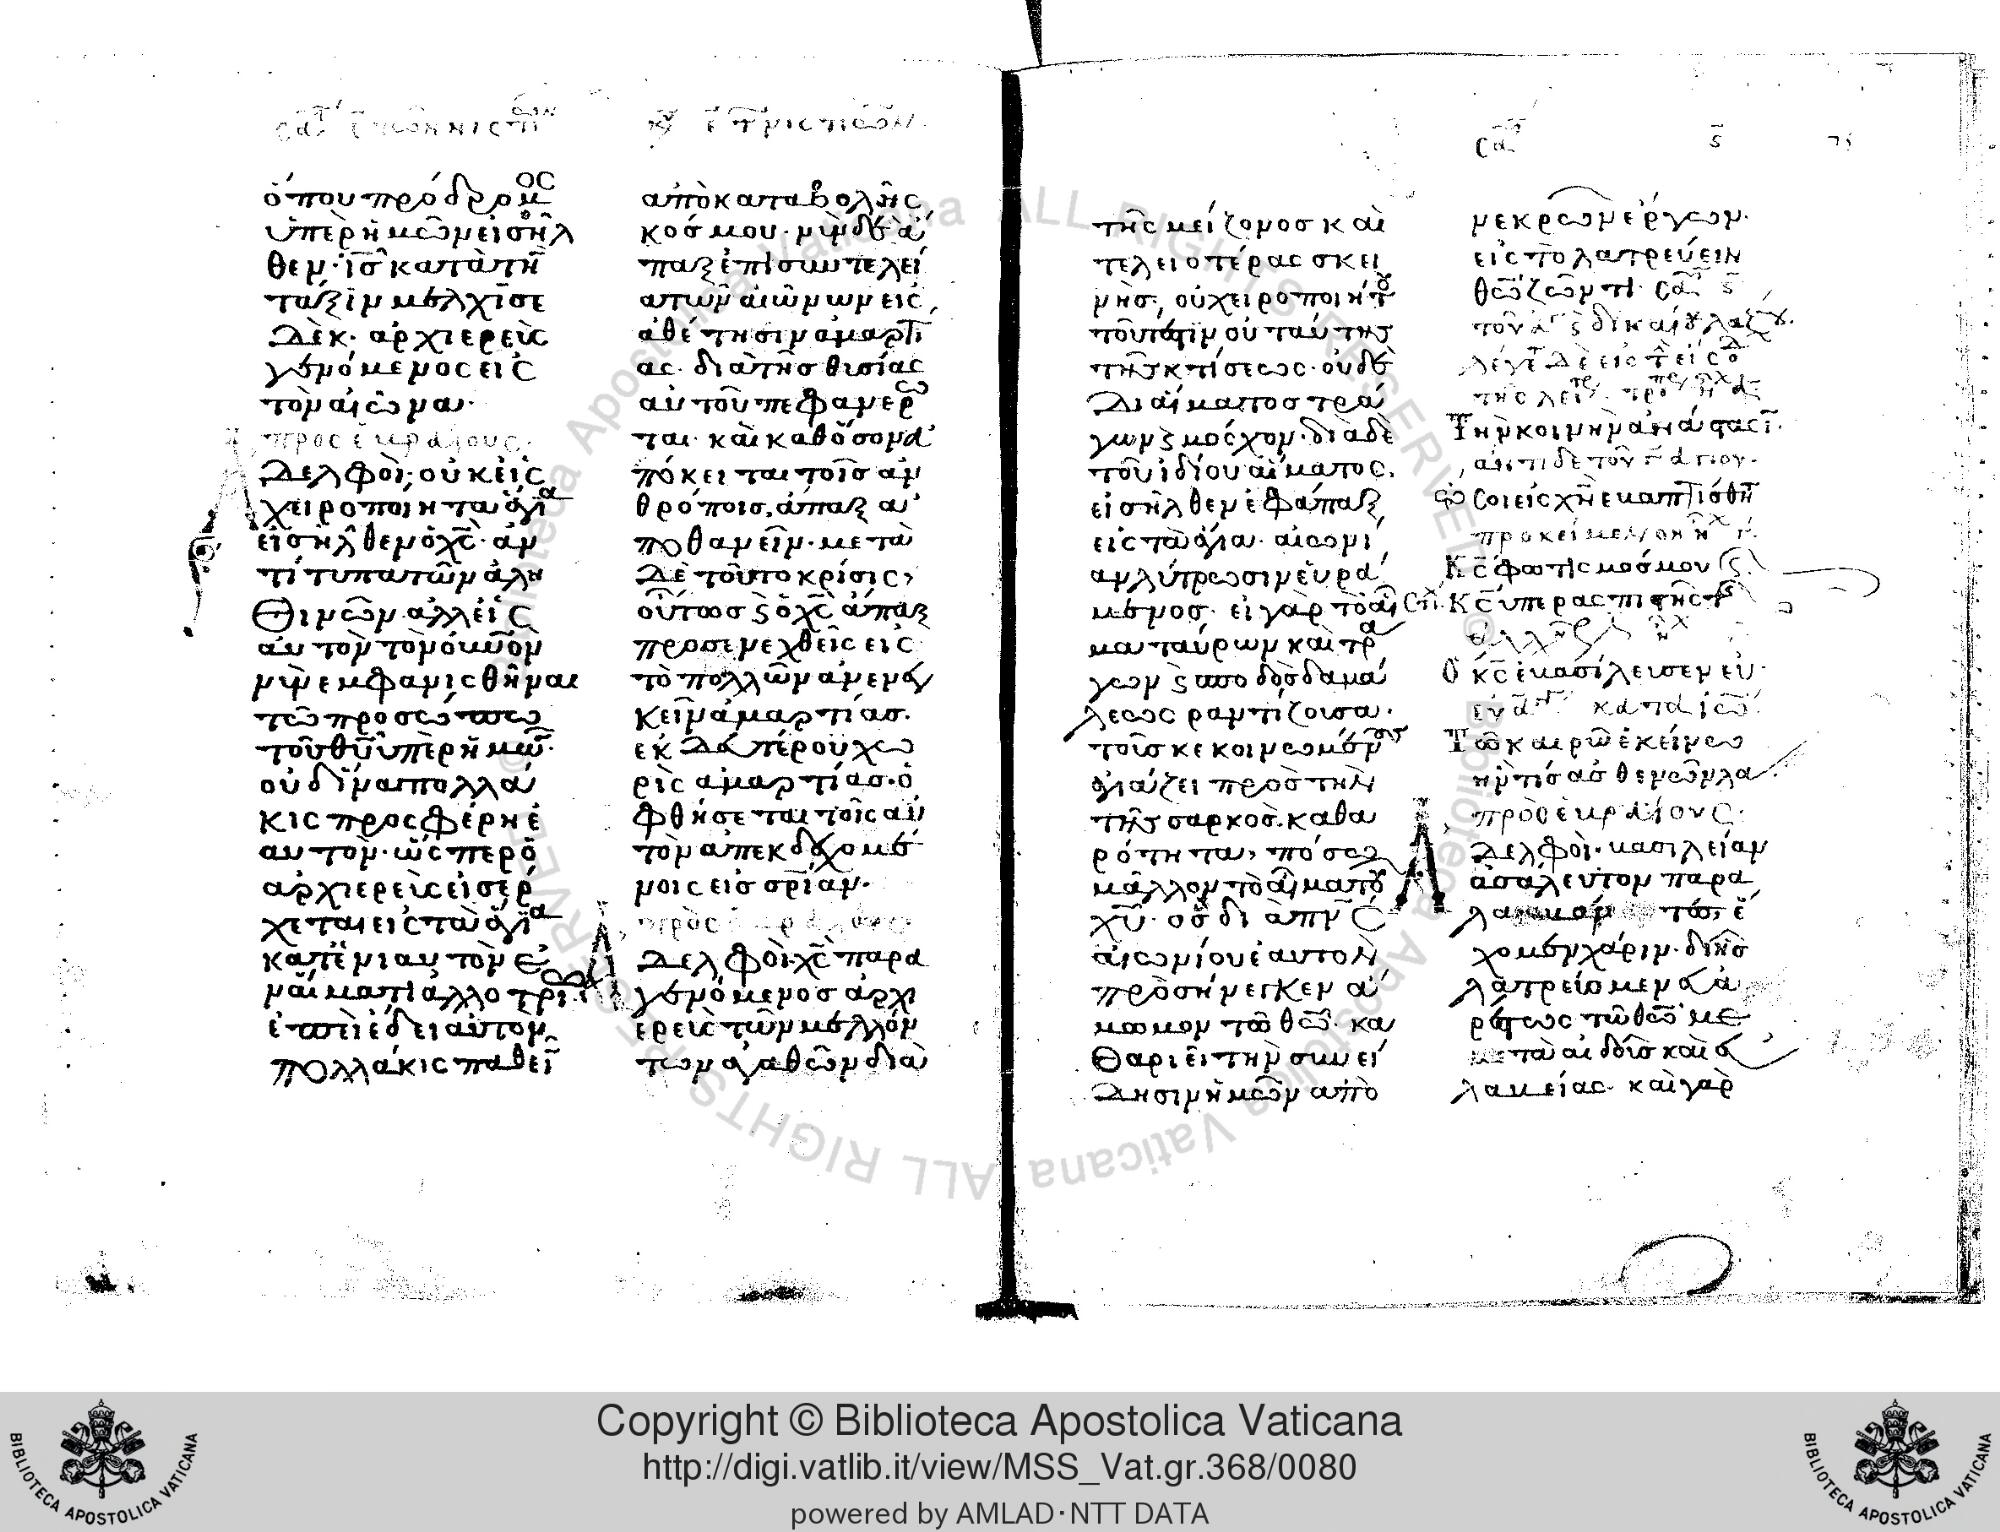 ὅπου πρόδρομος
ὑπὲρ ἡμῶν εἰσῆλ
θεν· ἰς̅ κατὰ τὴν
τάξιν μελχισε
δὲκ· ἀρχιερεὺς
γενόμενος εἰς
τὸν αἰῶνα·
προς εβραιους
Αδελφοὶ· οὐκ εἰς
χειροποιητα ἅγια
εἰσῆλθεν ὁ χς̅· ἀν
τίτυπα τῶν ἀλη
θινῶν· ἀλλ εἰς
αὐτὸν τὸν οὐνὸν
νῦν ἐμφανισθῆναι
τῶ προσώπω
τοῦ θῦ ὑπὲρ ἡμῶν·
οὐδ ἵνα πολλά
κις προσφέρη ἑ
αυτὸν· ὥσπερ ὁ
ἀρχιερεὺς εἰσέρ
χεται εἰς τὰ ἅγια
κατ ἐνιαυτὸν ἐ
ν αἵματι ἀλλοτρι
ἐπεὶ ἔδει αὐτὸν
πολλάκις παθεῖν
ἀπὸ καταβολῆς
κόσμου· νῦν δὲ ἅ
παξ ἐπὶ συντελεί
α τῶν αἰώνων εἰς
ἀθέτησιν ἁμαρτί
ας· διὰ τῆς θυσίας
αὐτοῦ πεφανέρω
ται· καὶ καθ ὅσον ἀ
πόκειται τοῖς ἀν
θρόποις, ἅπαξ ἀ
ποθανεῖν· μετὰ
δὲ τοῦτο κρίσις,
οὕτως ϛ ὁ χς̅ ἅπαξ
προσενεχθεὶς εἰς
τὸ πολλῶν ἀνενεγ
κεῖν ἁμαρτίας·
ἐκ δευτέρου χω
ρὶς ἁμαρτίας· ὀ
φθήσεται τοῖς αὐ
τὸν ἀπεκδεχομέ
νοις εἰς σρίαν·
πρὸς
Αδελφοὶ· χς̅ παρα
γενόμενος ἀρχι
ερεὺς τῶν μελλόν
των ἀγαθῶν διὰ
τῆς μείζονος καὶ
τελειοτέρας σκει
νῆς, οὐ χειροποιήτου
τουτέστιν οὐ ταύτης
τῆς κτίσεως· οὐδὲ
δι αἵματος τρά
γων ϛ μόσχον· διὰ δὲ
τοῦ ἰδίου αἵματος,
εἰσῆλθεν ἐφάπαξ
εἰς τὰ ἅγια· αἰωνί
αν λύτρωσιν εὑρά
μενος· εἰ γὰρ τὸ αἷ
μα ταύρων καὶ τρά
γων ϛ σποδὸς δαμά
λεως ραντίζουσα·
τοῖς κεκοινωμένους
ἁγιάζει πρὸς τὴν
τῆς σαρκὸς καθα
ρότητα, πόσω
μᾶλλον τὸ αἷμα τοῦ
χῦ· ος διὰ πνς
αἰωνίου ἑαυτὸν
προσήνεγκεν ἄ
μωμον τῶ θεῶ· κα
θαριεῖ τὴν συνεί
δησιν ἡμῶν ἀπὸ
νεκρῶν ἔργων·
εἰς τὸ λατρεύειν
θεῶ ζῶντι·
Τὴν κοινὴν ἀνάστασι·
Κς̅ φωτισμός μου ϛ
Κς̅ ὑπερασπιστὴς τ
Ο κς̅ ἐβασίλευσεν εὐ
Τῶ καιρῶ ἐκείνω
ἦν τίς ἀσθενῶν λα
πρὸς ἑβραίους·
Αδελφοὶ· βασιλείαν
ἀσάλευτον παρα
λα τες, ἔ
χομεν χάριν· δι ῆς
λατρεύομεν εὐα
ρέστως τῶ θεῶ με
μετὰ αἰδοῦς καὶ εὐ
λαβείας· καὶ γὰρ
Copyright © Biblioteca Apostolica Vaticana
http://digi.vatlib.it/view/MSS_Vat.gr.368/0080
powered by AMLAD·NTT DATA
BIBLIOTECA APOSTOLICA VATICANA
BIBLIOTECA APOSTOLICA VATICANA